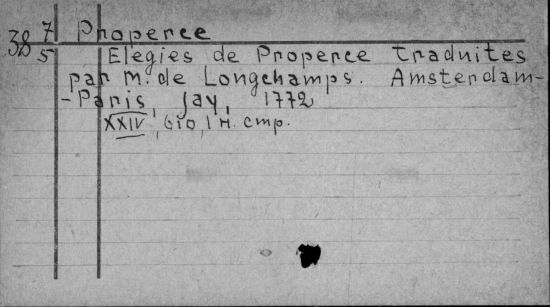 38 7/5 Properce
Elegies de Properce traduites
par M. de Longchamps. Amsterdam-
-Paris, Jay, 1772
XXIV, 610, 1 н. стр.